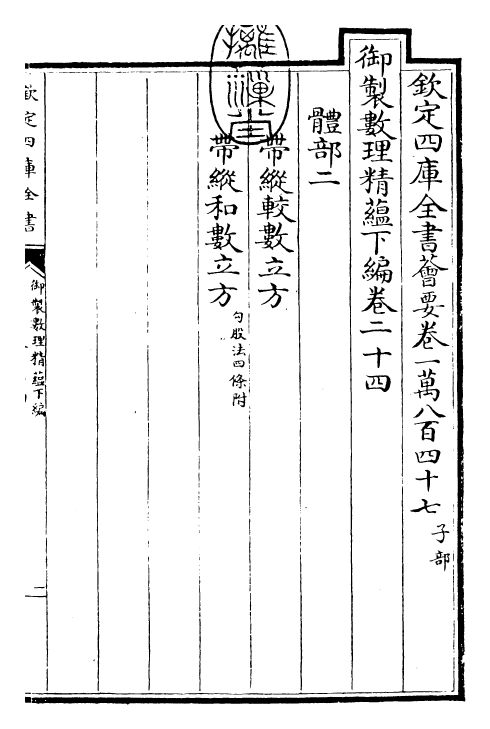 欽定四庫全書薈要卷一萬八百四十七 子部
御製數理精藴下編卷二十四
體部二
帶縱較數立方
帶縱和數立方 勾股法四條附
欽定四庫全書
御製數理精藴下編